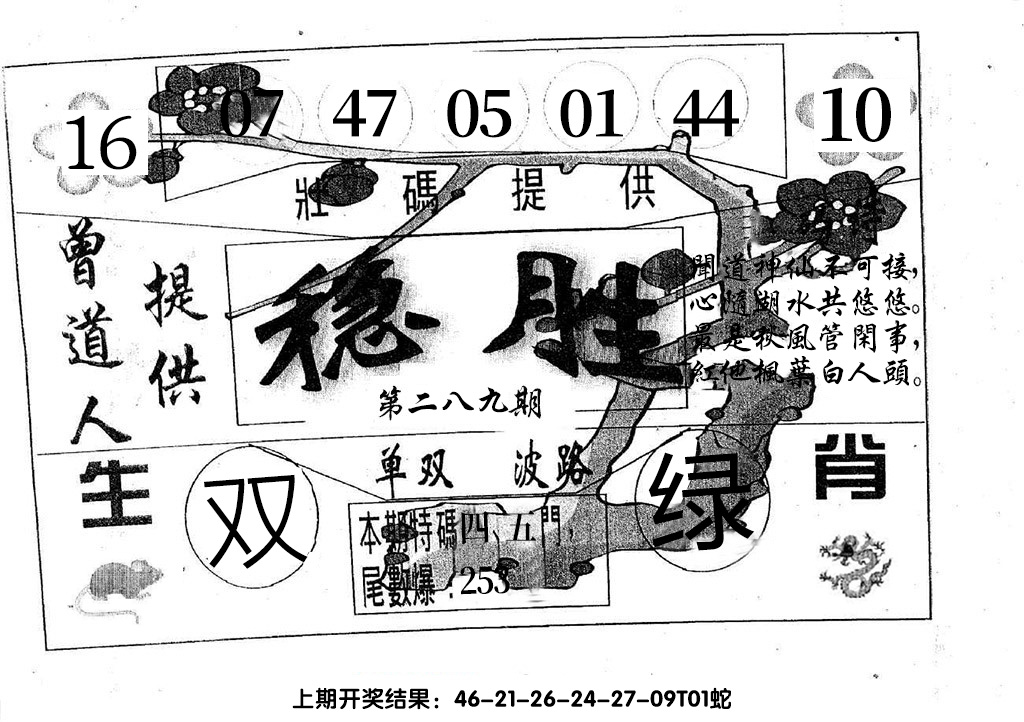 16 07 47 05 01 44 10
壯碼提供
曾道人
提供
穩胜
第二八九期
聞道神仙不可接，
心隨湖水共悠悠。
最是秋風管閑事，
紅他楓葉白人頭。
单双 波路
生肖
双
绿
本期特碼四、五門，
尾數爆：253
上期开奖结果：46-21-26-24-27-09T01蛇